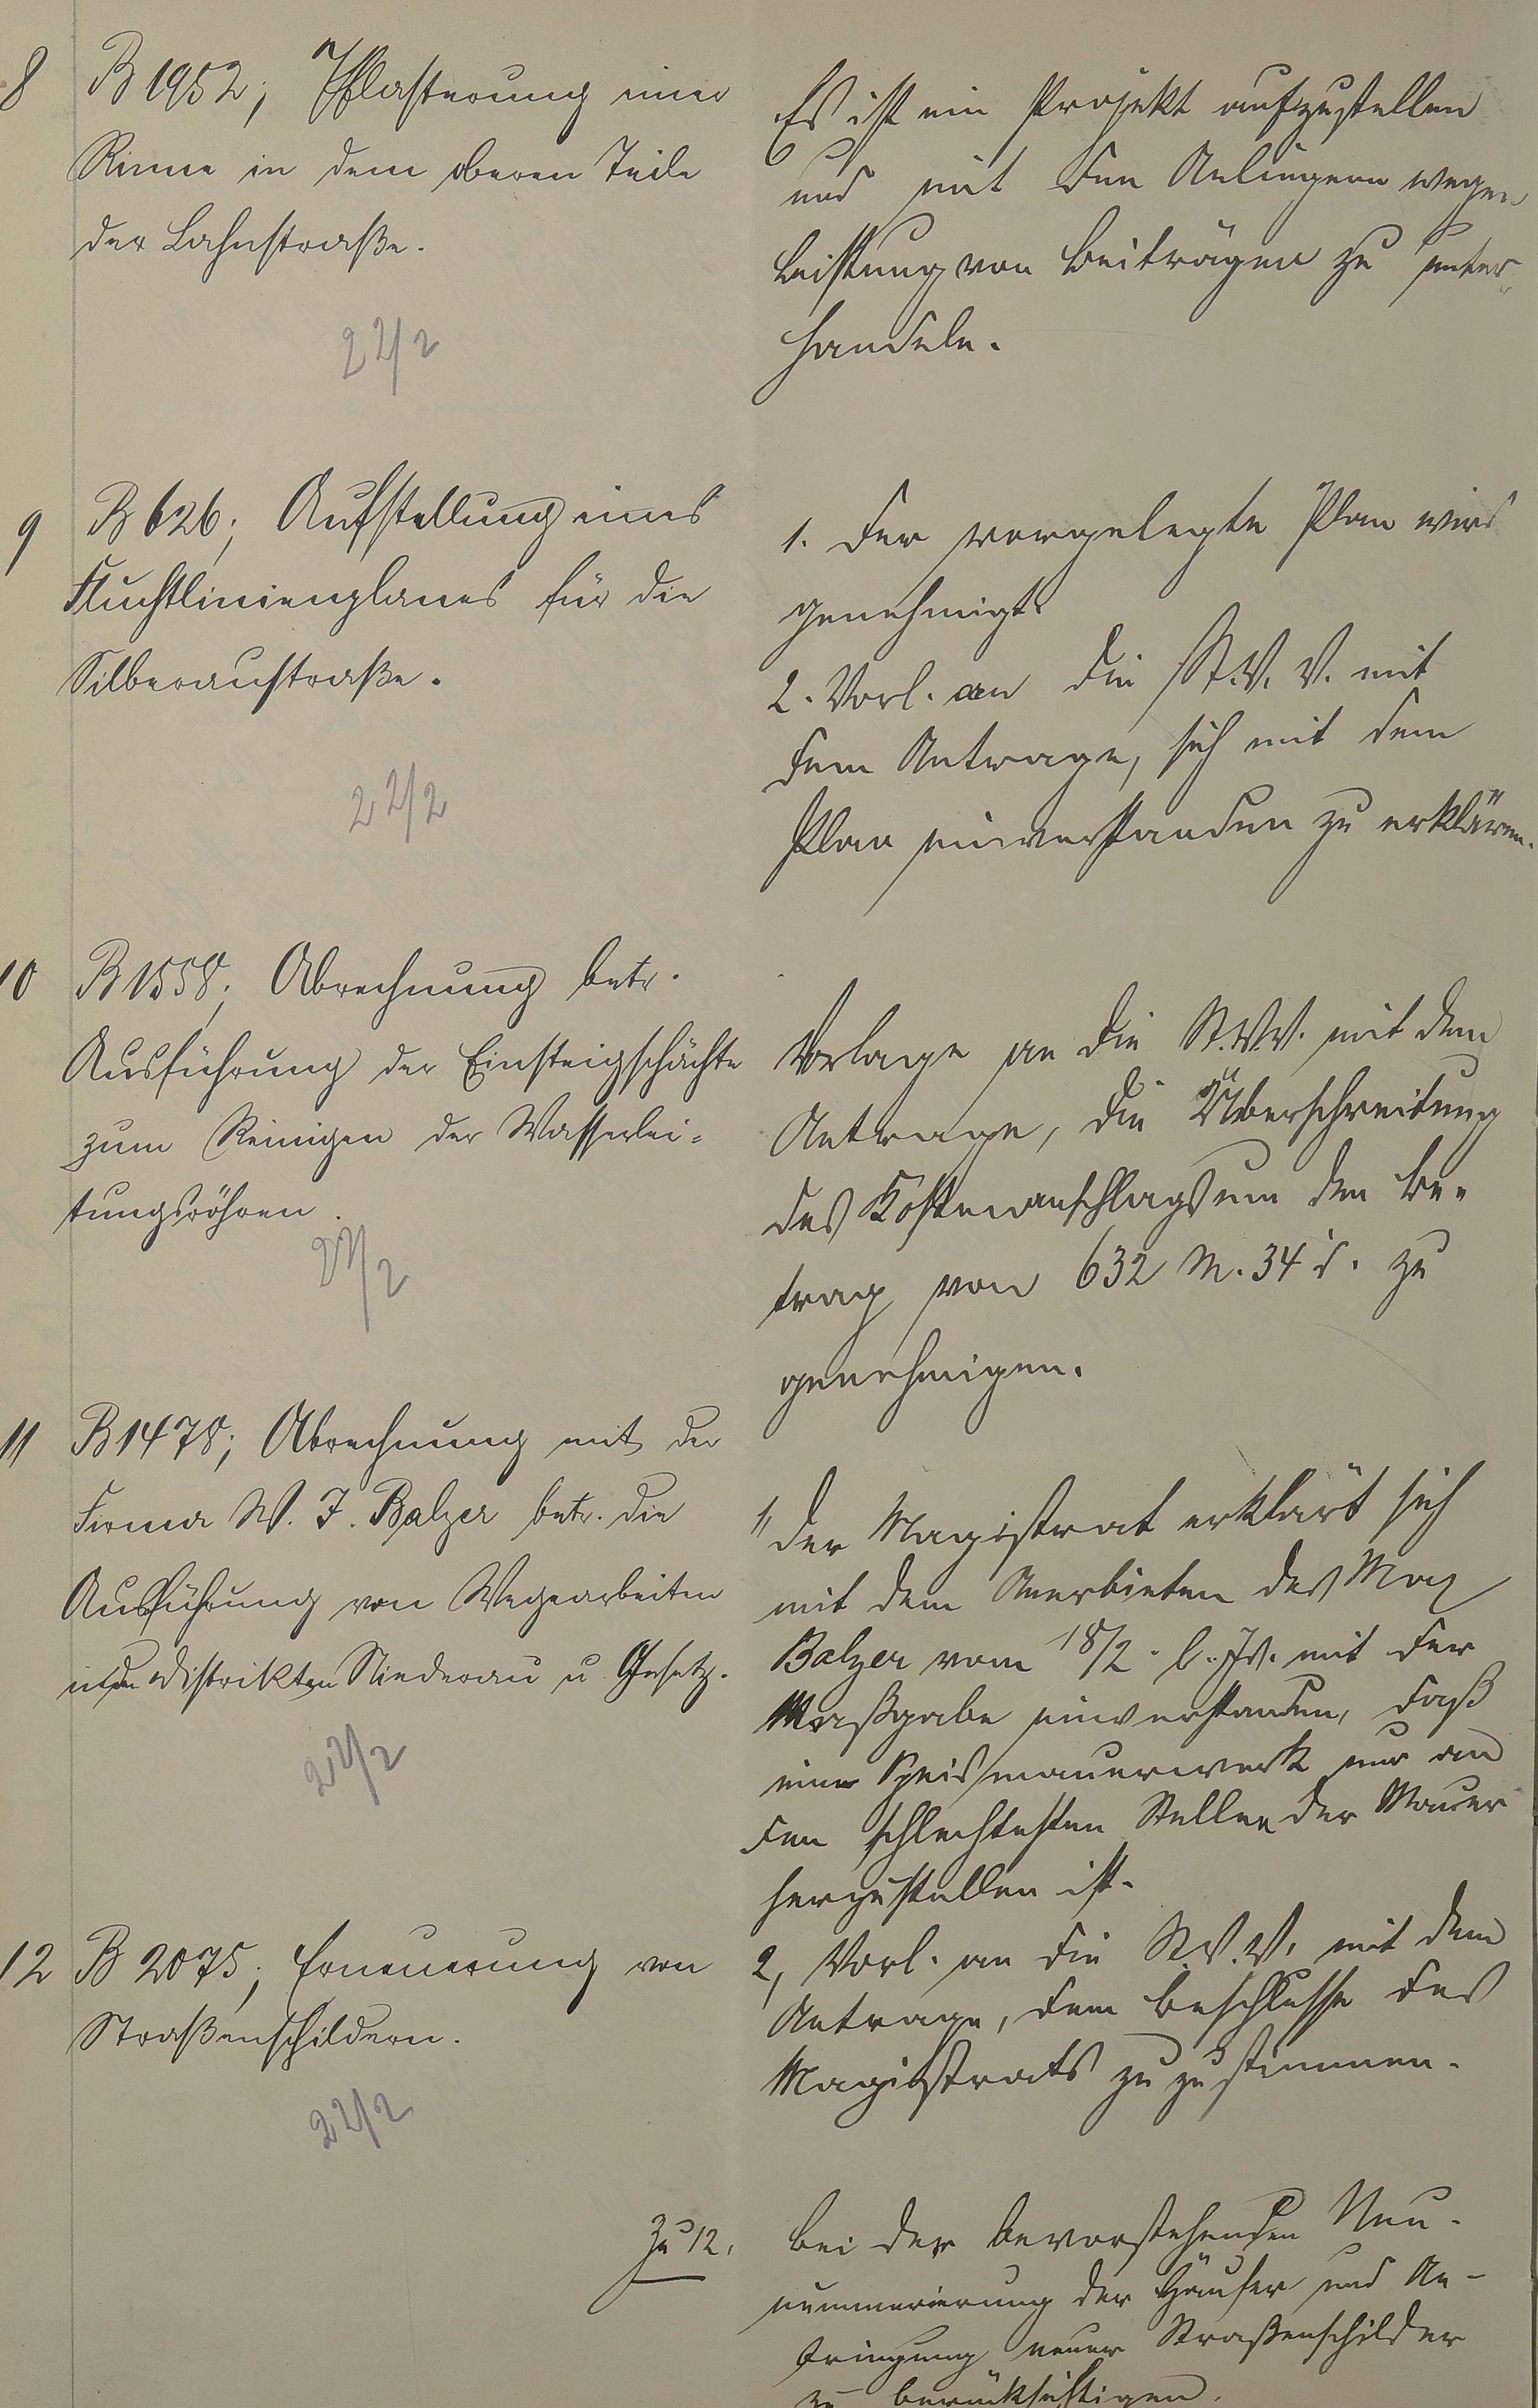 8 B 1952; Pflasterung einer
Rinne in dem oberen Teile
der Lahnstraße.
22/2
Es ist ein Projekt aufzustellen
und mit den Anliegern wegen
Leistung von Beiträgen zu unter-
handeln.
9 B 626; Aufstellung eines
Fluchtlinienplanes für die
Silberaustraße.
22/2
1. Der vorgelegte Plan wird
genehmigt.
2. Vorl. an die St. V. V. mit
dem Antrage, sich mit dem
Plan einverstanden zu erklären.
10 B 1558; Abrechnung betr.
Ausführung der Einsteigschächte
zum Reinigen der Wasserlei-
tungsröhren.
22/2
Vorlage an die St. V. V. mit dem
Antrage, die Überschreitung
des Kostenanschlags um den Be-
trag von 632 M. 34 d. zu
genehmigen.
11 B 1478; Abrechnung mit der
Firma W. J. Balzer betr. die
Ausführung von Wegearbeiten
in den Distrikten Niederau u Gesetz.
22/2
1, Der Magistrat erklärt sich
mit dem Anerbieten des Max
Balzer vom 18/2. l. Js. mit der
Maßgabe einverstanden, daß
eine Speismauerwerk nur an
den schlechtesten Stellen der Mauer
herzustellen ist.
2, Vorl. an die St. V. V. mit dem
Antrage, dem Beschlusse des
Magistrats zuzustimmen.
12 B 2075; Erneuerung von
Straßenschildern.
22/2
Zu 12. Bei der bevorstehenden Neu-
nummerierung der Häuser und An-
bringung neuer Straßenschilder
zu berücksichtigen.